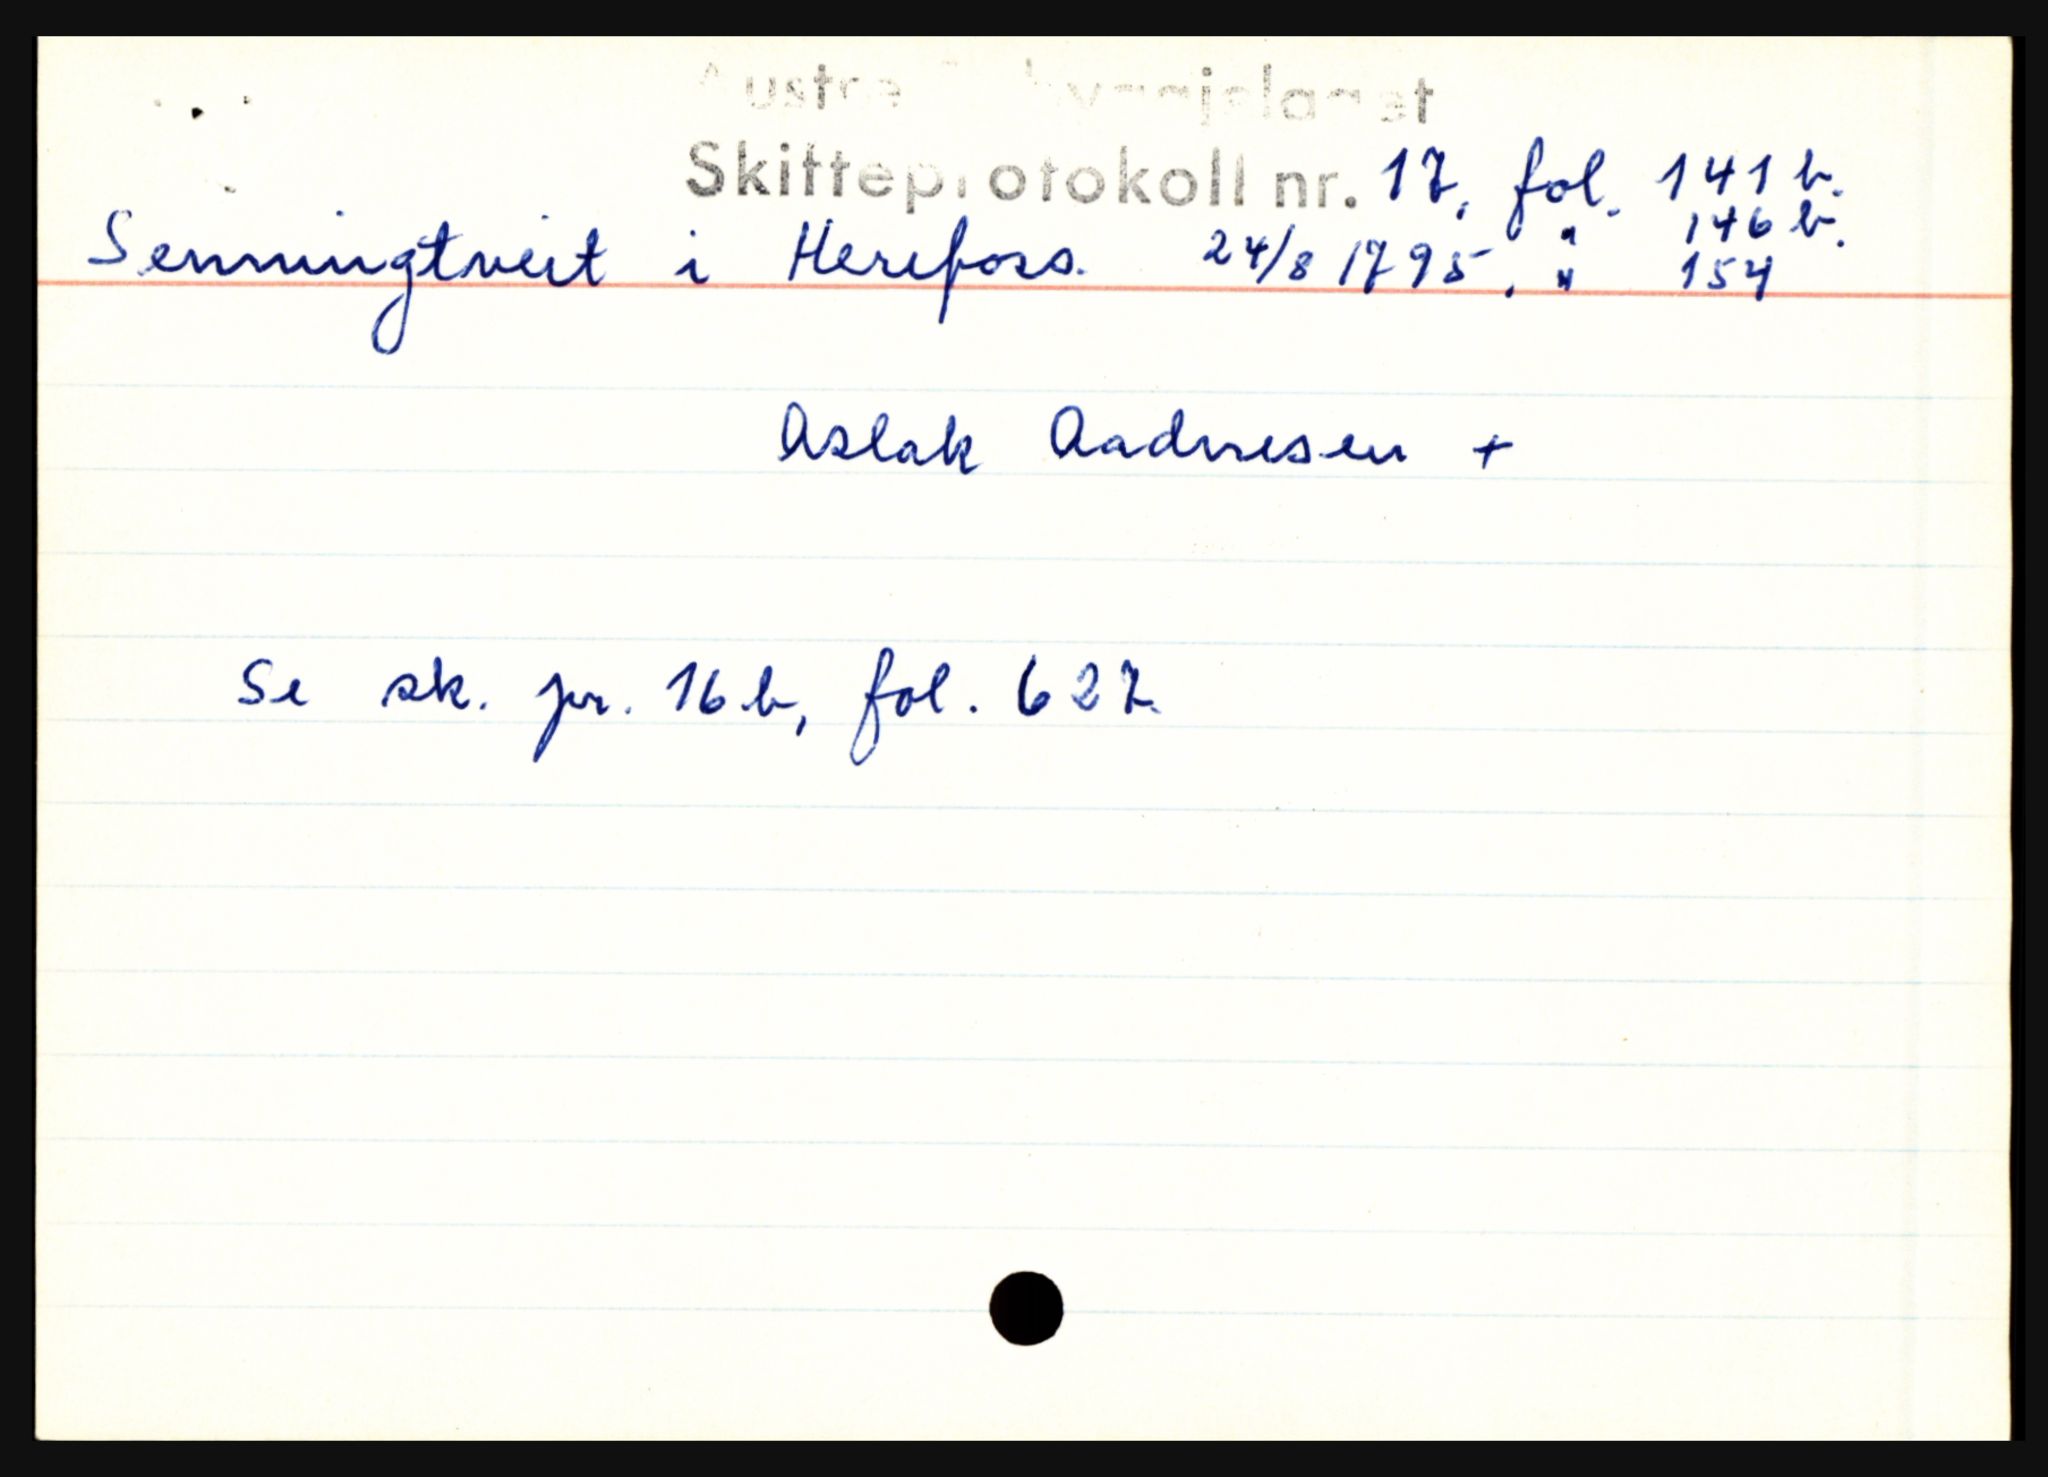 Skifteprotokoll nr. 17, fol. 141 b.
" 146 b.
Senningtveit i Herefoss. 24/8 1795, " 154
Aslak Aadnesen +
Se sk. pr. 16 b, fol. 627.